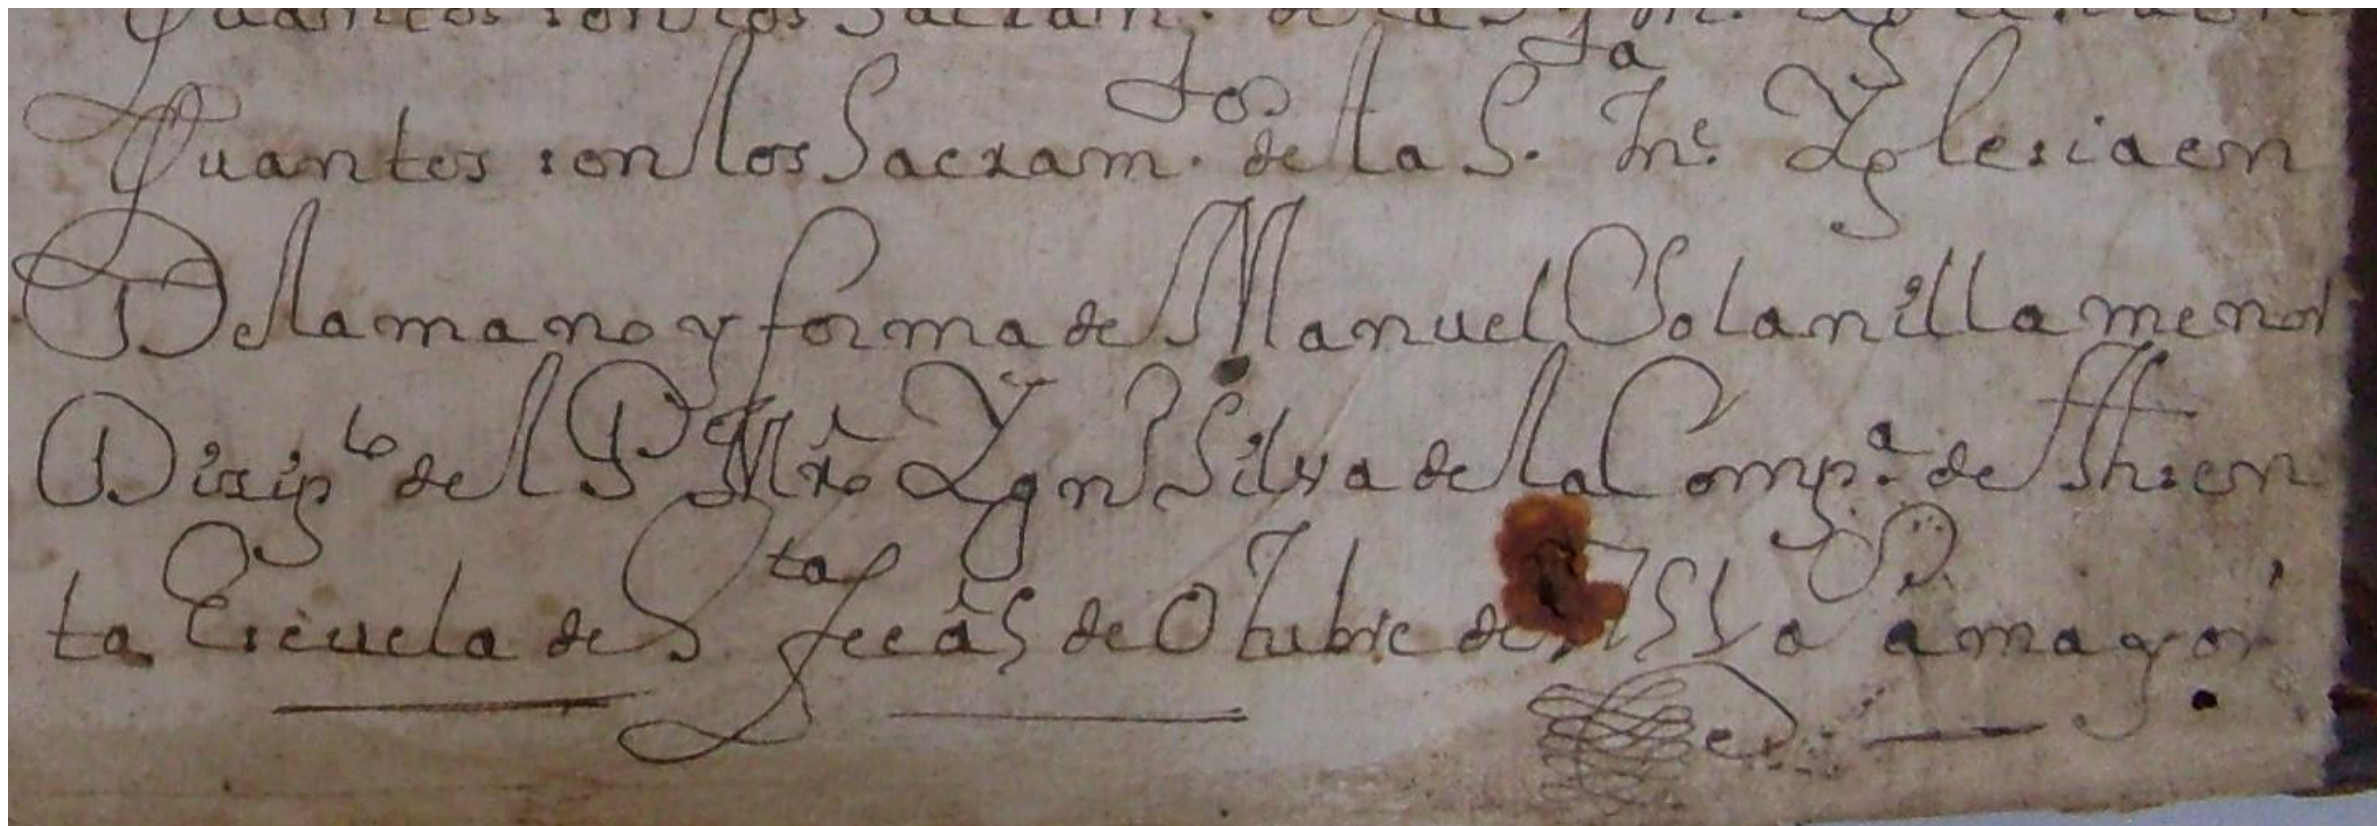 Quantos son los Sacram. de la S
Quantos son los Sacram.tos de la S.ta Me. Yglesia en
De la mano y forma de Manuel Solanilla menor
Disip.lo de el P.e Mro Ygn Silva de la Comp.a de Jhs en
ta Escuela de S.ta fee à 5 de Otubre de 1751 a a mayor